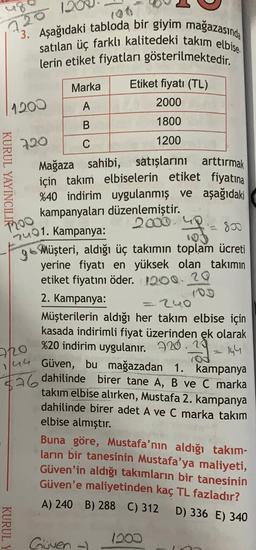 1200.
100
720
3. Aşağıdaki tabloda bir giyim mağazasında
satılan üç farklı kalitedeki takım elbise-
lerin etiket fiyatları gösterilmektedir.
Marka Etiket fiyatı (TL)
A 2000
B 1800
C 1200
1200
720
Mağaza sahibi, satışlarını arttırmak
için takım elbiselerin etiket fiyatına
%40 indirim uygulanmış ve aşağıdaki
kampanyaları düzenlemiştir.
2000.40
100
= 800
1. Kampanya:
Müşteri, aldığı üç takımın toplam ücreti
yerine fiyatı en yüksek olan takımın
etiket fiyatını öder.
1200.20
100
= 240
2. Kampanya:
Müşterilerin aldığı her takım elbise için
kasada indirimli fiyat üzerinden ek olarak
%20 indirim uygulanır.
720.20
100
= 144
720
144
576
Güven, bu mağazadan 1. kampanya
dahilinde birer tane A, B ve C marka
takım elbise alırken, Mustafa 2. kampanya
dahilinde birer adet A ve C marka takım
elbise almıştır.
Buna göre, Mustafa'nın aldığı takım-
ların bir tanesinin Mustafa'ya maliyeti,
Güven'in aldığı takımların bir tanesinin
Güven'e maliyetinden kaç TL fazladır?
A) 240 B) 288 C) 312 D) 336 E) 340
Güven → 1200
KURUL YAYINCILIK
KURUL Y